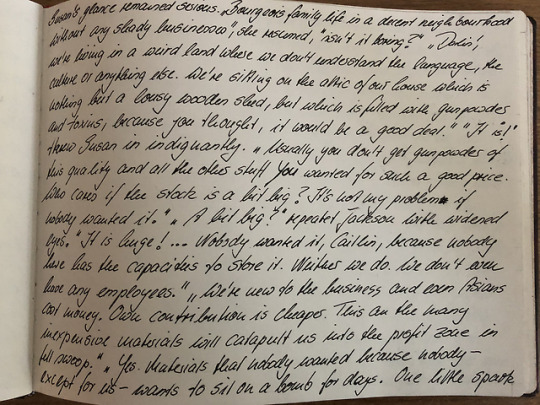 Susan's glance remained serious. „Bourgeois family life in a decent neighbourhood
without any shady businesses", she resumed, "isn't it boring?" „Darlin',
we're living in a weird land where we don't understand the language, the
culture or anything else. We're sitting on the attic of our house which is
nothing but a lousy wooden shed, but which is filled with gunpowder
and toxins, because you thought, it would be a good deal." "It is!"
threw Susan in indignantly. „Usually you don't get gunpowder of
this quality and all the other stuff you wanted for such a good price.
Who cares if the stock is a bit big? It's not my problem if
nobody wanted it." „A bit big?" repeated Jackson with widened
eyes. "It is huge! ... Nobody wanted it, Caitlin, because nobody
here has the capacities to store it. Neither we do. We don't even
have any employees." „We're new to the business and even Asians
cost money. Own contribution is cheaper. This an the many
inexpensive materials will catapult us into the profit zone in
full swoop." „Yes. Materials that nobody wanted because nobody –
except for us – wants to sit on a bomb for days. One little spark